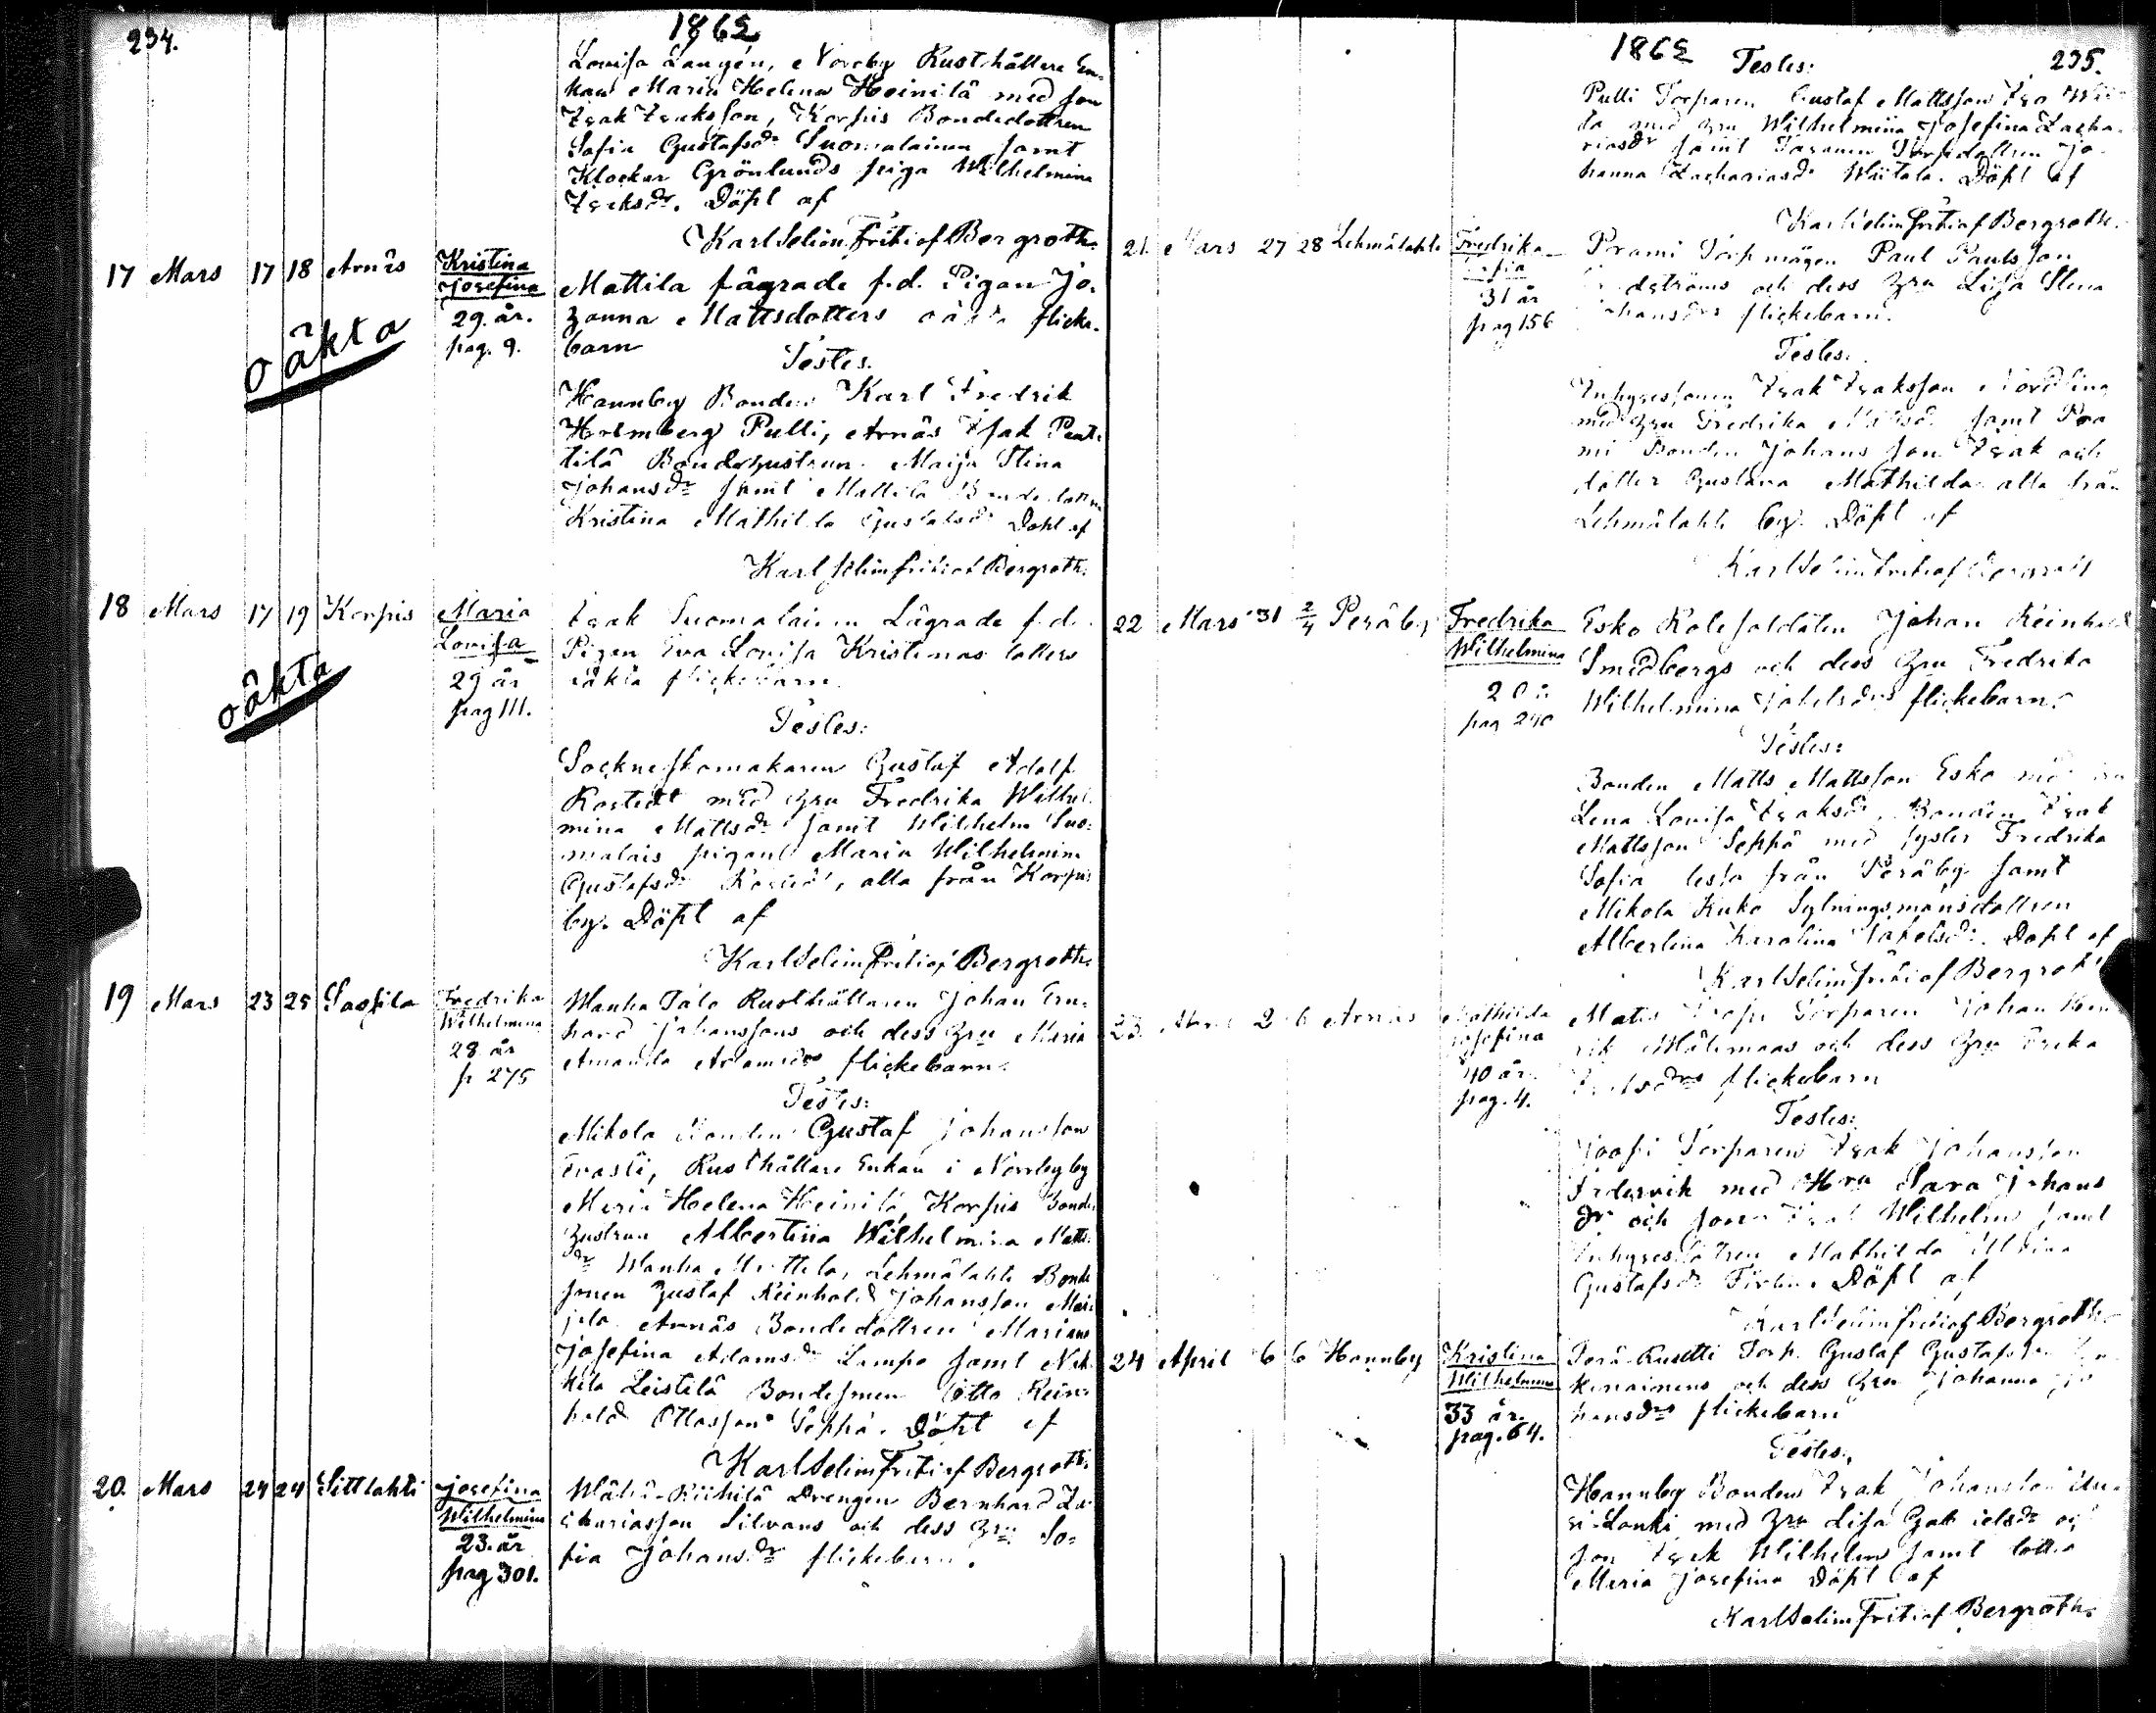 234.
1862
Lovisa Langén, Norrby Rusthållare En-
kan Maria Helena Heinilä med son
Isak Isaksson, Korpis Bondedottren
Sofia Gustafsdr Suomalainen samt
Klockar Grönlunds piga Wilhelmina
Isaksdr. Döpt af
Karl Selim Fritiof Bergroth.
17 Mars 17 18 Arnäs Kristina Josefina 29 år. pag. 9.
oäkta
Mattila lägrade f.d. Pigan Jo-
hanna Mattsdotters oäkta flicke-
barn
Testes.
Hannby Bonden Karl Fredrik
Holmberg Pulli, Arnäs Isak Pent-
tilä Bondehustrun Maija Stina
Johansdr samt Mattila Bondedottren
Kristina Mathilda Gustafsdr Döpt af
Karl Selim Fritiof Bergroth.
18 Mars 17 19 Korpis Maria Lovisa 29 år pag 111.
oäkta
Isak Suomalainen Lägrade f.d.
Pigan Eva Lovisa Kristinas dotters
oäkta flickebarn.
Testes:
Sockneskomakaren Gustaf Adolf
Rostedt med hru Fredrika Wilhel-
mina Mattsdr samt Wilhelm Suo-
malais pigan Maria Wilhelmina
Gustafsdr Rostedt, alla från Korpis
by. Döpt af
Karl Selim Fritiof Bergroth.
19 Mars 23 25 Sappila Fredrika Wilhelmina 28 år p 275
Wanha Talo Rusthållaren Johan Ern-
hard Johanssons och dess hru Maria
Amanda Adamsdrs flickebarn.
Testes:
Mikola Bonden Gustaf Johansson
Evasti, Rusthållare Enkan i Norrby by
Maria Helena Heinilä, Korpis Bonde
hustrun Albertina Wilhelmina Matts-
dr Wanha Mattila, Lehmälahti Bonde
sonen Gustaf Reinhold Johansson Mai-
jala Arnäs Bondedottren Mariana
Josefina Adamsdr Lampo samt
Leistilä Bondesonen Otto Rein-
hold Ottosson Seppä. Döpt af
Karl Selim Fritiof Bergroth.
20. Mars 24 24 Sittlahti Josefina Wilhelmina 23 år pag 301.
Wähä-Riihilä Drengen Bernhard Za-
chariasson Silvans och dess hru So-
fia Johansdrs flickebarn.
1862
235.
Testes:
Pulli Torparen Gustaf Mattsson
med hru Wilhelmina Josefina Zacha-
riasdr samt Torpdottren Jo-
hanna Zachariasdr Wiitala. Döpt af
Karl Selim Fritiof Bergroth.
21. Mars 27 28 Lehmälahti Fredrika Sofia 31 år pag 156
Prami Torpmågen Paul Paulsson
och dess hru Lisa Stina
Johansdrs flickebarn.
Testes.
Inhysessonen Isak Isaksson Nordling
med hru Fredrika Mattsdr samt Pra
mi Bonden Johans son Isak och
dotter Gustava Mathilda alla från
Lehmälahti by. Döpt af
Karl Selim Fritiof Bergroth
22 Mars 31 2/4 Peräby Fredrika Wilhelmina pag 290
Esko Rotesoldaten Johan Reinhold
Smedbergs och dess hru Fredrika
Wilhelmina Jakelsdrs flickebarn.
Testes:
Bonden Matts Mattsson Esko med hru
Lena Lovisa Isaksdr, Bonden Isak
Mattsson Seppä med syster Fredrika
Sofia dessa från Peräby samt
Mikola Kuko Sytningsmansdottren
Albertina Karolina Jakelsdr. Döpt af
Karl Selim Fritiof Bergroth
23. April 2 6 Arnäs Mathilda Josefina 40 år. pag. 4.
Torparen Johan Hen-
rik och dess hru Erika
flickebarn
Testes:
Torparen Isak Johansson
med Hru Sara Johans
dr och son Isak Wilhelm samt
Mathilda Ulrika
Gustafsdr Döpt af
Karl Selim Fritiof Bergroth
24 April 6 6 Hannby Kristina Wilhelmina 33 år. pag. 64.
Torp. Gustaf Gustafsson
och dess hru Johanna Jo
hansdrs flickebarn
Testes.
Hannby Bonden Isak Johansson Uu-
si-Lonki med hru Lisa Gabrielsdr och
son Isak Wilhelm samt dotter
Maria Josefina Döpt af
Karl Selim Fritiof Bergroth.